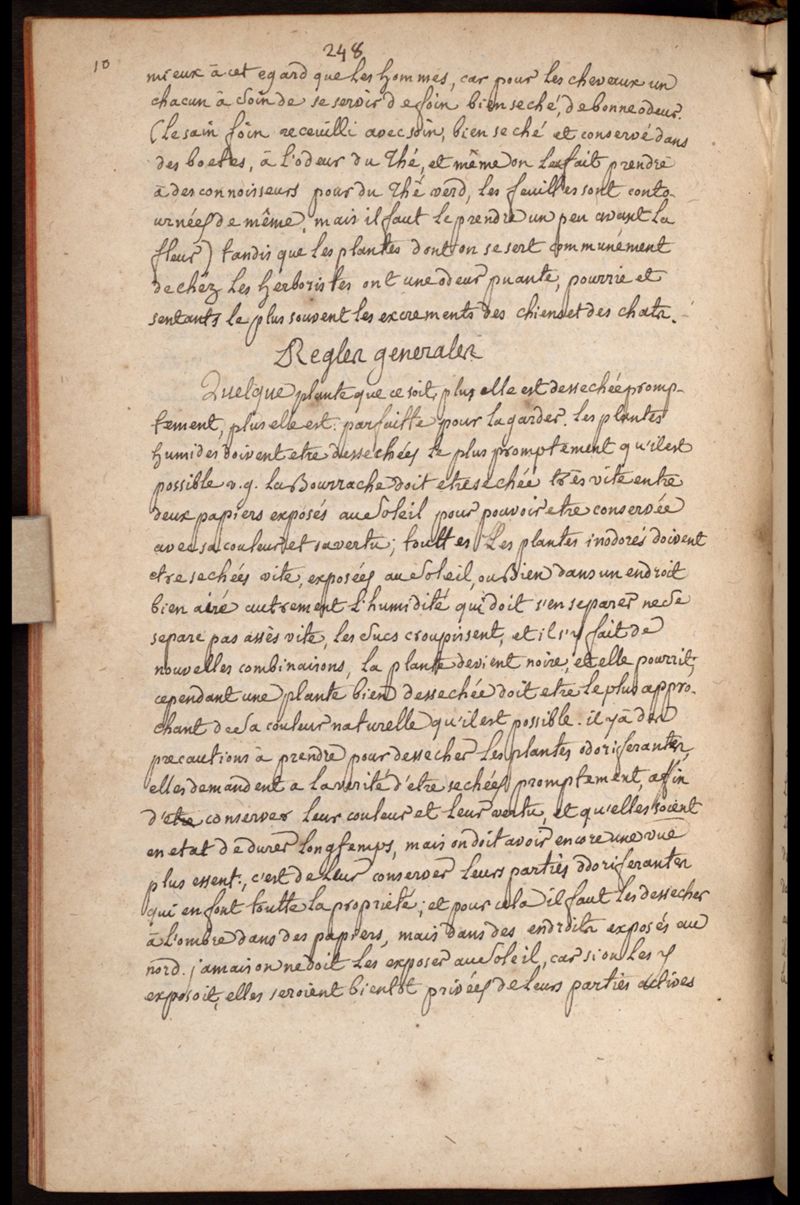 10
248
mieux à cet egard que les hommes, car pour les chevaux un
chacun à Soin de se servir de foin bien seché, de bonne odeur.
(le sain foin receuilli avec soin, bien seché et conservé dans
des boetes, à l'odeur du Thé, et même on le fait prendre
à des connoisseurs pour du Thé verd, les feuilles sont conto-
urnées de même, mais il faut le prendre un peu avant la
fleur) tandis que les plantes dont on se sert communément
de chéz les Herboristes ont une odeur puante, pourrie et
sentants le plus souvent les excrements des chiens et des chats.
Regles generales
Quelque plante que ce soit, plus elle est dessechée promp-
tement, plus elle est parfaitte pour la garder. les plantes
humides doivent etre dessechées le plus promptement qu'il est
possible v.g. la Bourrache doit etre sechée très vite entre
deux papiers exposés au Soleil pour pouvoir etre conservée
avec sa couleur et sa vertu; touttes Les plantes inodores doivent
etre sechées vite, exposées au Soleil, ou Bien dans un endroit
bien airé autrement l'humidité qui doit s'en separer ne Se
separe pas assès vite, les Sucs croupissent, et il s'y fait de
nouvelles combinaisons, la plante devient noire, et elle pourrit;
cependant une plante bien dessechée doit etre le plus appro-
chant de Sa couleur naturelle qu'il est possible. il y à des
precautions à prendre pour dessecher Les plantes odoriferantes,
elles demandent a la verité d'etre sechées promptement, afin
d'etre conserver leur couleur et leur vertu, et qu'elles soient
en etat de durer longtemps, mais on doit avoir encore une vuë
plus essent:, c'est de leur conserver leurs parties odoriferantes
qui en font toutte la proprieté; et pour cela il faut les dessecher
à l'ombre dans des papiers, mais dans des endroits exposés au
nord. jamais on ne doit les exposer au Soleil, car si on les y
exposoit, elles seroient bientôt privées de leurs parties actives